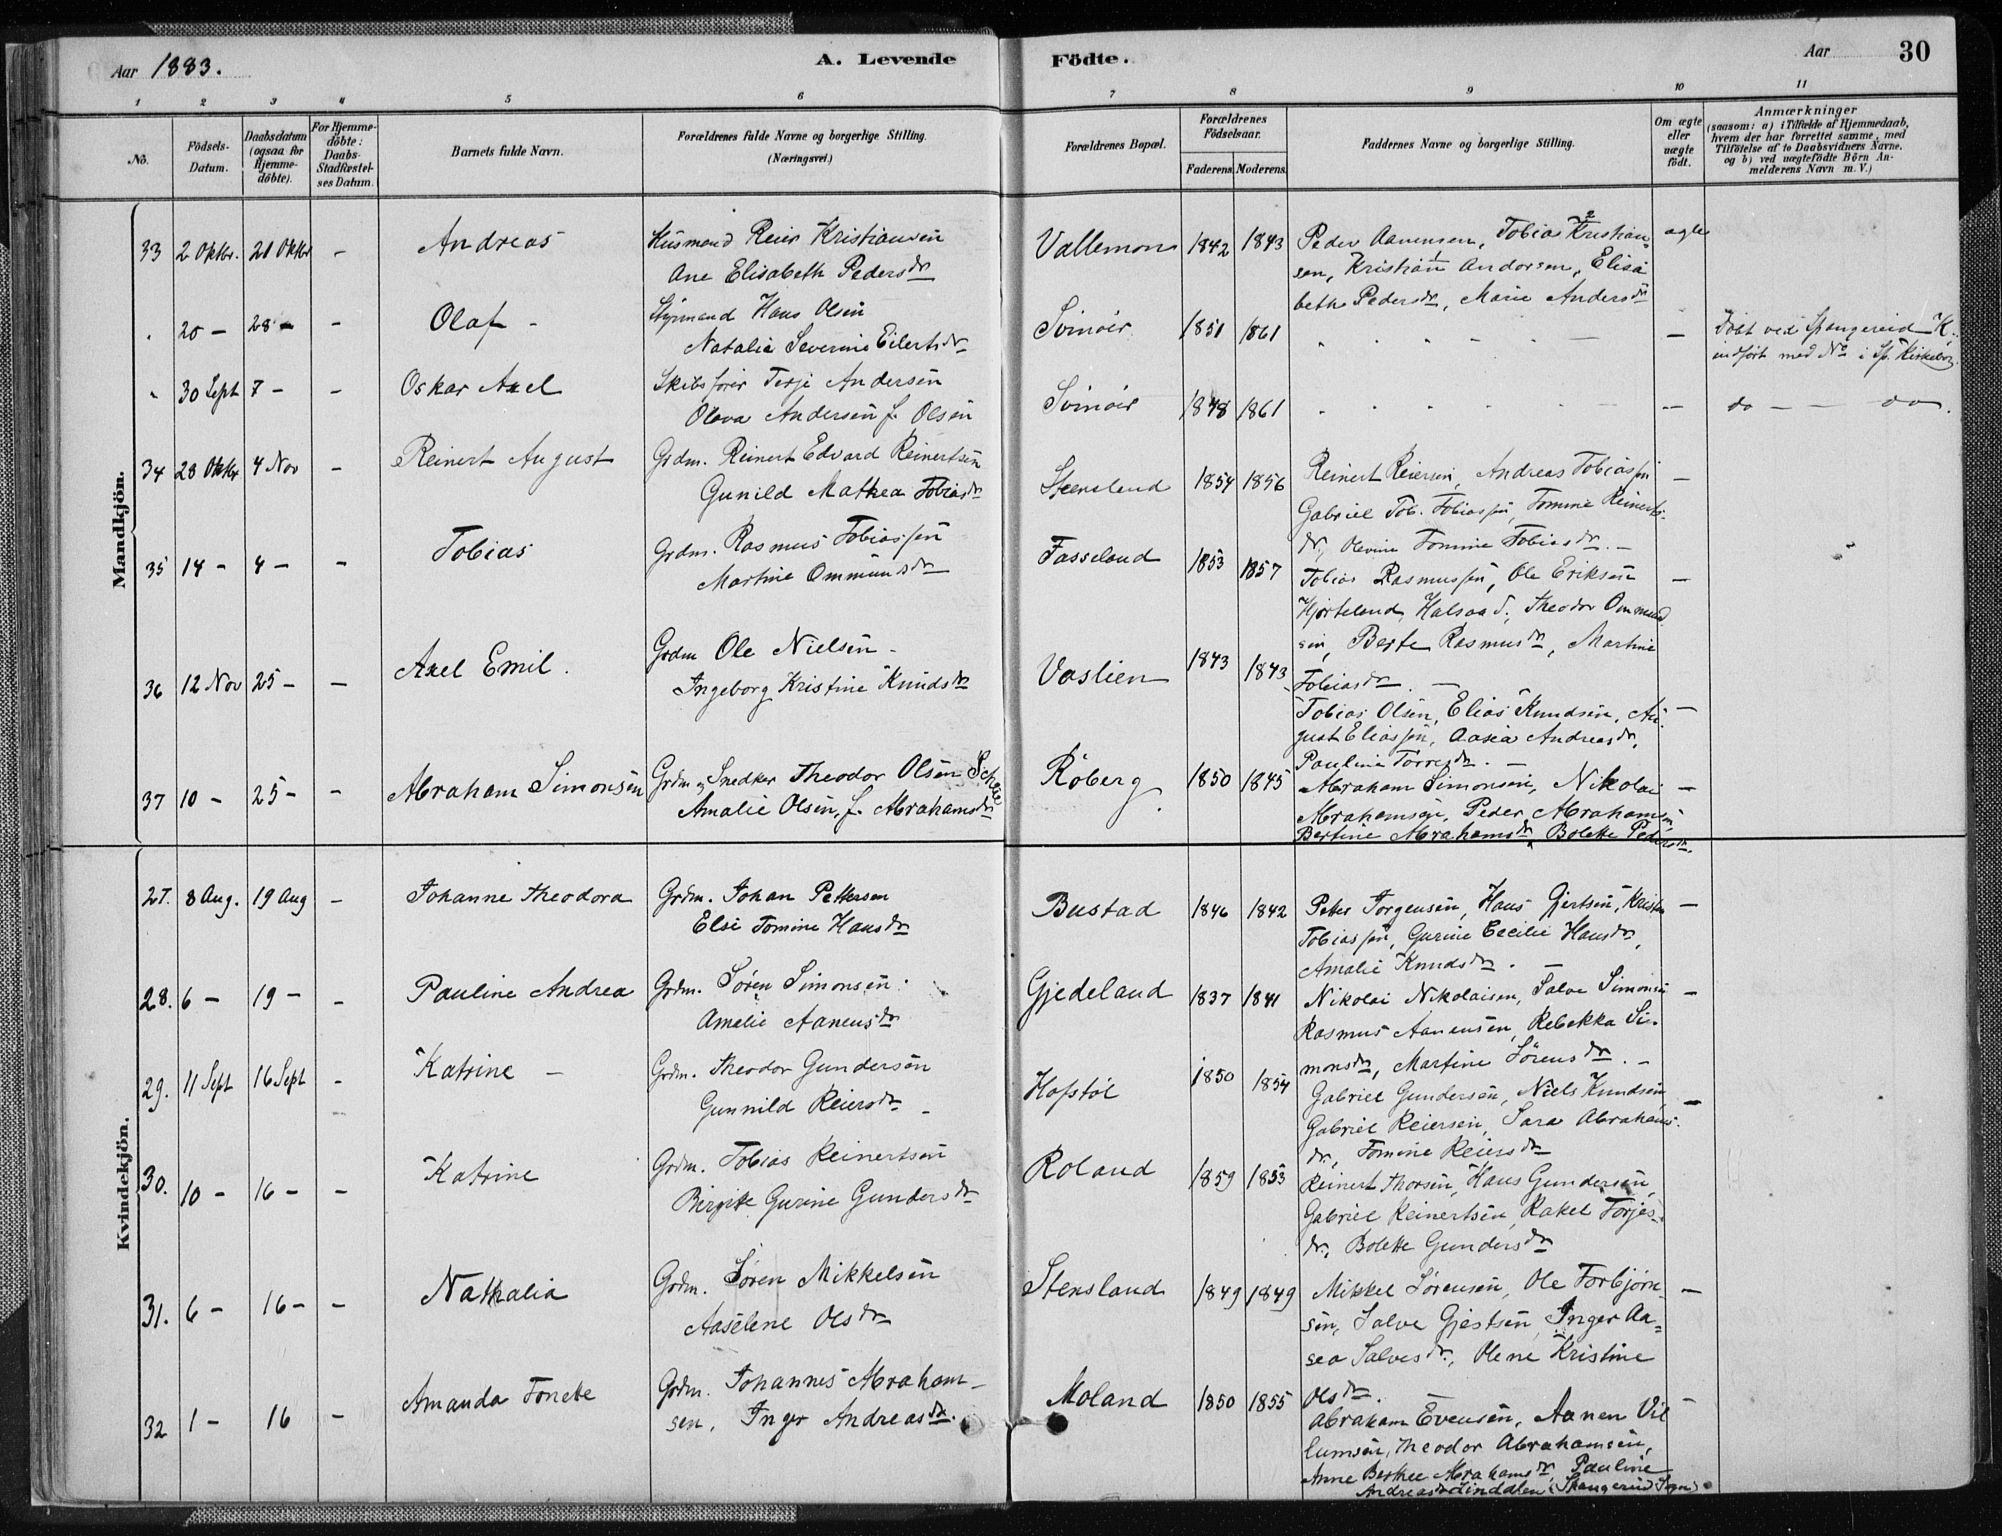 Aar 1883.
A. Levende
Födte.
Aar
30
1 2 3 4 5 6 7 8 9 10 11
No.
Födsels-Datum.
Daabsdatum (ogsaa for Hjemme-döbte).
For Hjemme-döbte: Daabs-Stadfæstel-ses Datum.
Barnets fulde Navn.
Forældrenes fulde Navne og borgerlige Stilling.
(Næringsvei.)
Forældrenes Bopæl.
Forældrenes Födselsaar.
Faderens Moderens
Faddernes Navne og borgerlige Stilling.
Om ægte eller uægte födt.
Anmærkninger
(saasom: a) i Tilfælde af Hjemmedaab,
hvem der har forrettet samme, med
Tilföielse af to Daabsvidners Navne,
og b) ved uægtefödte Börn An-
melderens Navn m. V.)
Mandkjön.
33 2 Oktbr. 21 Oktbr - Andreas
Husmand Reier Kristiansen
Ane Elisabeth Pedersdr
Vallemon 1842 1843
Peder Aanensen, Tobias Kristian-
sen, Kristian Andersen, Elisa
beth Pedersdr, Marie Andersdr
ægte
" 20 - 28 - - Olaf -
Styrmand Hans Olsen
Natalie Severine Eilertsdr
Svinöir 1851 1861
-
Döbt ved Spangereid K.,
indfört med No i Sp. Kirkebog.
" 30 Sept 7 - - Oskar Axel
Skibsförer Terje Andersen
Olava Andersen f. Olsen
Svinöir 1848 1861
-
do - - do.
34 28 Oktbr 4 Nov - Reinert August
Grdm. Reinert Edvard Reinertsen
Gunild Mathea Tobiasdr
Stensland 1854 1856
Reinert Reiersen, Andreas Tobiassen
Gabriel Tob. Tobiassen, Tomine Reinerts-
dr, Olevine Tomine Tobiasdr. -
-
35 14 - 4 - - Tobias
Grdm. Rasmus Tobiassen
Martine Ommundsdr
Fasseland 1853 1857
Tobias Rasmussen, Ole Eriksen
Hjorteland, Halsaa S., Theodor Ommund
sen, Berte Rasmusdr, Martine
Tobiasdr. -
-
36 12 Nov 25 - - Axel Emil.
Grdm Ole Nielsen -
Ingeborg Kristine Knudsdr
Vaslien 1843 1843
Tobias Olsen, Elias Knudsen, Au-
gust Eliassen, Aasea Andreasdr,
Pauline Torresdr. -
-
37 10 - 25 - - Abraham Simonsen
Grdm og Snedker Theodor Olsen
Amalie Olsen, f. Abrahamsdr
Röberg 1850 1845
Abraham Simonsen, Nikolai
Abrahamsen, Peder Abrahamsen,
Bertine Abrahamsdr, Bolette Pedersdr.
-
Kvindekjön.
27. 8 Aug. 19 Aug - Johanne Theodora
Grdm. Johan Pettersen
Else Tomine Hansdr
Bustad 1846 1842
Petter Jörgensen, Hans Gjertsen, Kristen
Tobiassen, Gurine Cecilie Hansdr,
Amalie Knudsdr. -
-
28. 6 - 19 - - Pauline Andrea
Grdm. Sören Simonsen.
Amalie Aanensdr
Gjedeland 1837 1841
Nikolai Nikolaisen, Salve Simonsen
Rasmus Aanensen, Rebekka Si-
monsdr, Martine Sörensdr. -
-
29. 11 Sept 16 Sept - Katrine -
Grdm. Theodor Gundersen
Gunnild Reiersdr -
Hofstöl 1850 1854
Gabriel Gundersen, Niels Knudsen,
Gabriel Reiersen, Sara Abrahams-
dr, Tomine Reiersdr
-
30. 10 - 16 - - Katrine
Grdm. Tobias Reinertsen
Birgitte Gurine Gundersdr
Roland 1859 1853
Reinert Thorsen, Hans Gundersen,
Gabriel Reinertsen, Rakel Torjes-
dr, Bolette Gundersdr
31. 6 - 16 - - Nathalia
Grdm. Sören Mikkelsen
Aaselene Olsdr
Stensland 1849 1849
Mikkel Sörensen, Ole Torbjörn-
sen, Salve Gjertsen, Inger Aa-
sea Salvesdr., Olene Kristine
Olsdr.
-
32 1 - 16 - Amanda Tonette
Grdm. Johannes Abraham-
sen, Inger Andreasdr.
Moland 1850 1855
Abraham Evensen, Aanen Vil
lumsen, Theodor Abrahamsen,
Anne Berthee Abrahamsdr, Pauline
Andreasdr Lindalen (Spangereid Sogn)
-